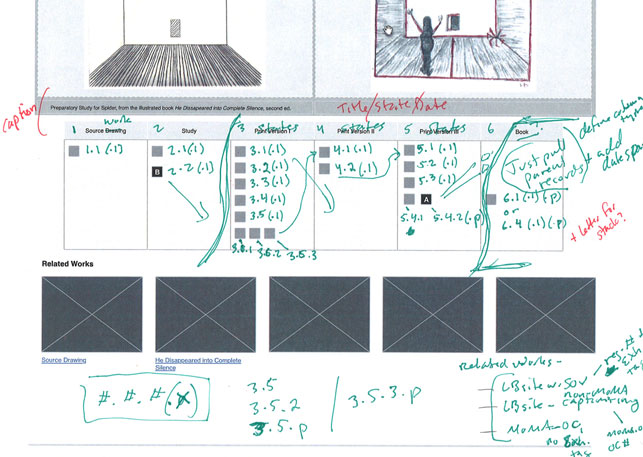 Preparatory Study for Spider, from the illustrated book He Disappeared into Complete Silence, second ed.
Caption
Title/State/Date
1 work 2 3 states 4 states 5 states 6
Source Drawing Study Print Version I Print Version II Print Version III Book
define column
+ add
1.1 (.1)
2.1 (.1)
B 2.2 (.1)
3.1 (.1)
3.2 (.1)
3.3 (.1)
3.4 (.1)
3.5 (.1)
3.5.2 3.5.3
4.1 (.1)
4.2 (.1)
5.1 (.1)
5.2 (.1)
5.3 (.1)
A
5.4.1 5.4.2 (.p)
Just pull
parent
records
6.1 (.1)(.p)
or
6.4 (.1)(.p)
+ letter for
stack?
Related Works
Source Drawing
He Disappeared Into Complete
Silence
#.#.#(.x)
3.5
3.5.2
3.5.p
3.5.3.p
Related Works -
LBsite w. SOV
non-MoMA
LBsite - captioning
MoMA - OC,
no Exh.
tag
OC#